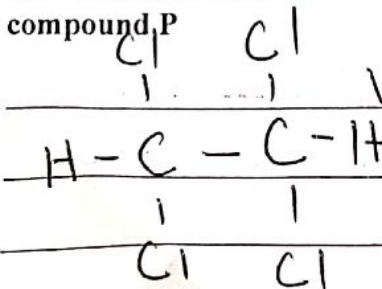 compound P
Cl Cl
H - C - C - H
Cl Cl